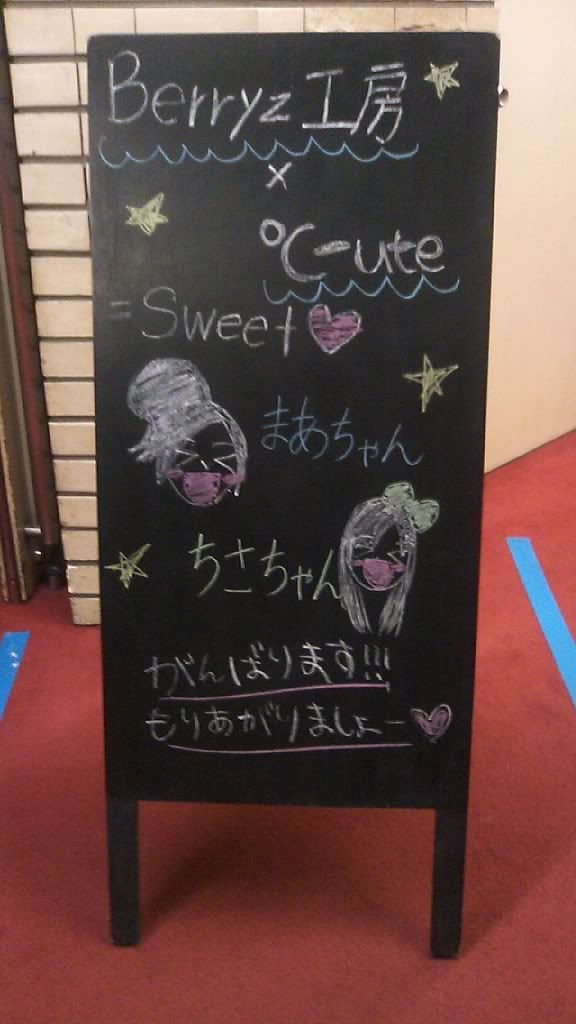 Berryz工房
×
℃-ute
=Sweet♥
まあちゃん
ちさちゃん
がんばります!!!
もりあがりましょー♥